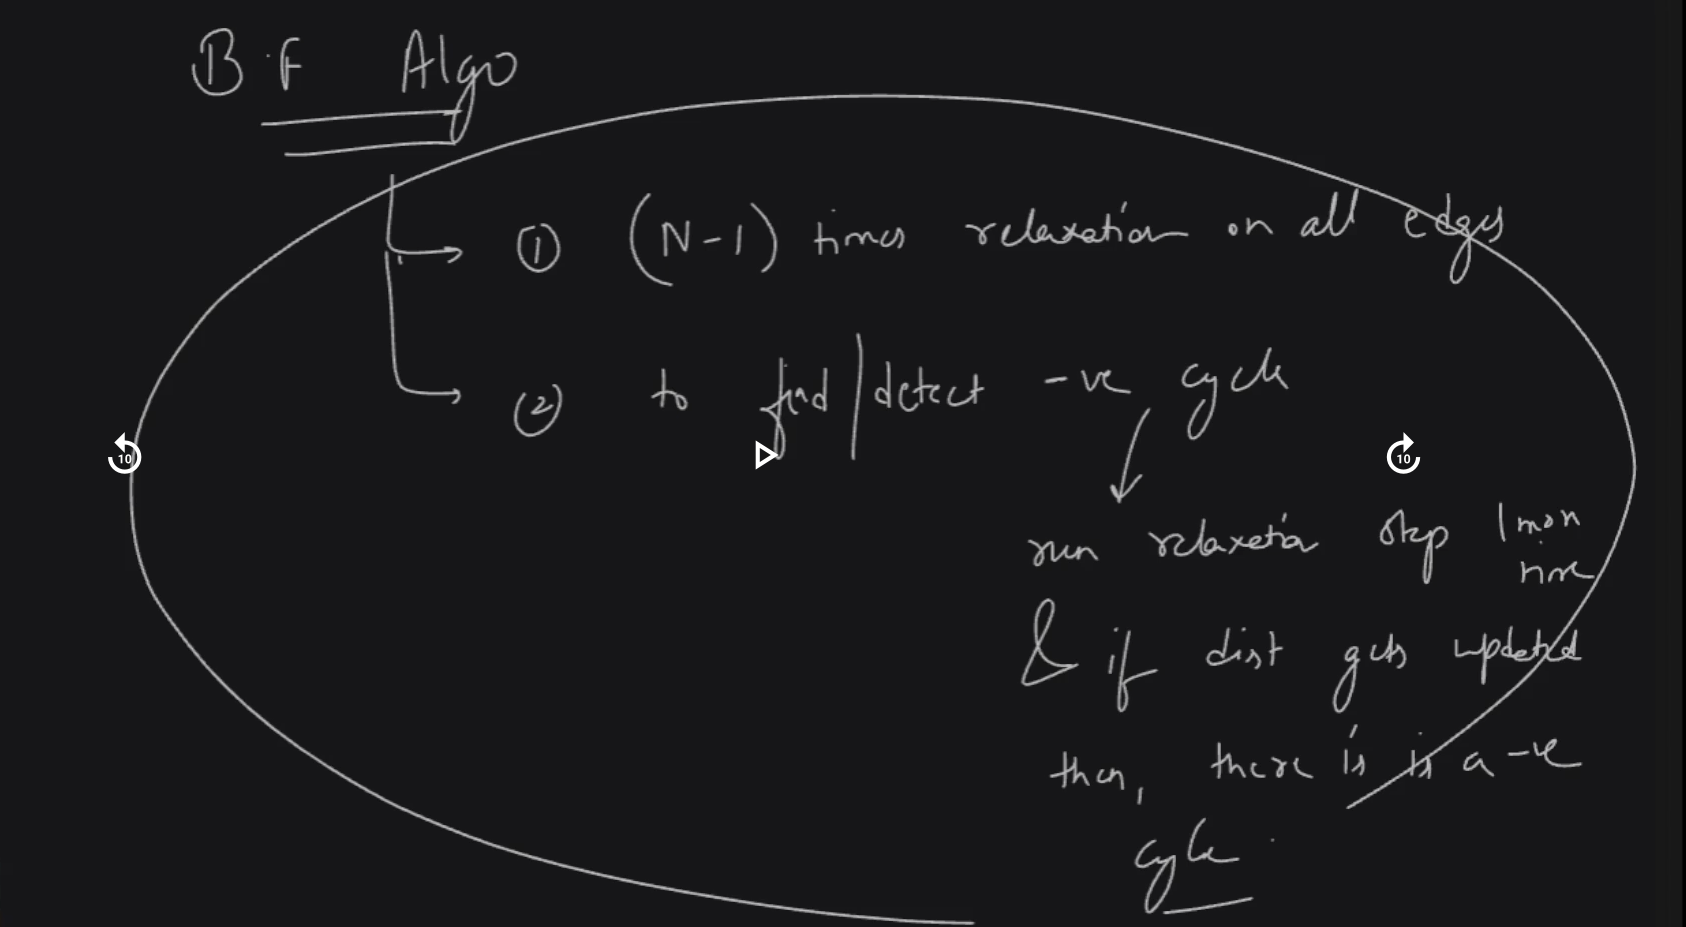 B.F Algo
① (N-1) times relaxation on all edges
② to find/detect -ve cycle
run relaxation step 1 more
time
& if dist gets updated
then, there is is a -ve
cycle.
10
10